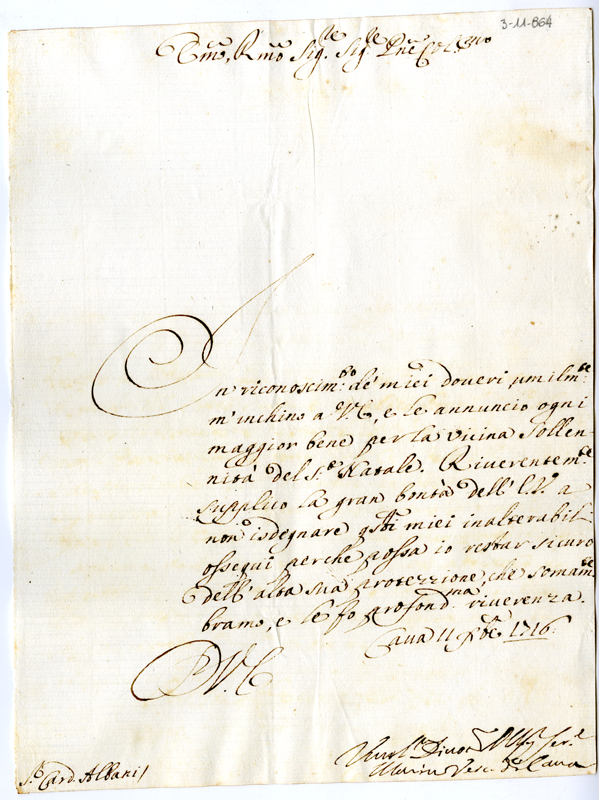 3-11-864
Em̃o, e Rm̃o Sig.re Sig.re Pñe Col.mo
In riconoscim.to de' miei doveri umilm.te
m'inchino a V.E., e le annuncio ogni
maggior bene per la vicina Sollen-
nità del S.o Natale. Riverentem.te
supplico la gran bontà dell'E.V. a
non isdegnare q.sti miei inalterabili
ossequi perche possa io restar sicuro
dell'alta sua protezzione, che somam.te
bramo, e le fo profond.ma riverenza.
Cava 11 Xbre 1716.
D V.E.
S.r Card. Albani
Umil.o Divot.o Obl.o Ser.e
Vesc. de Cava